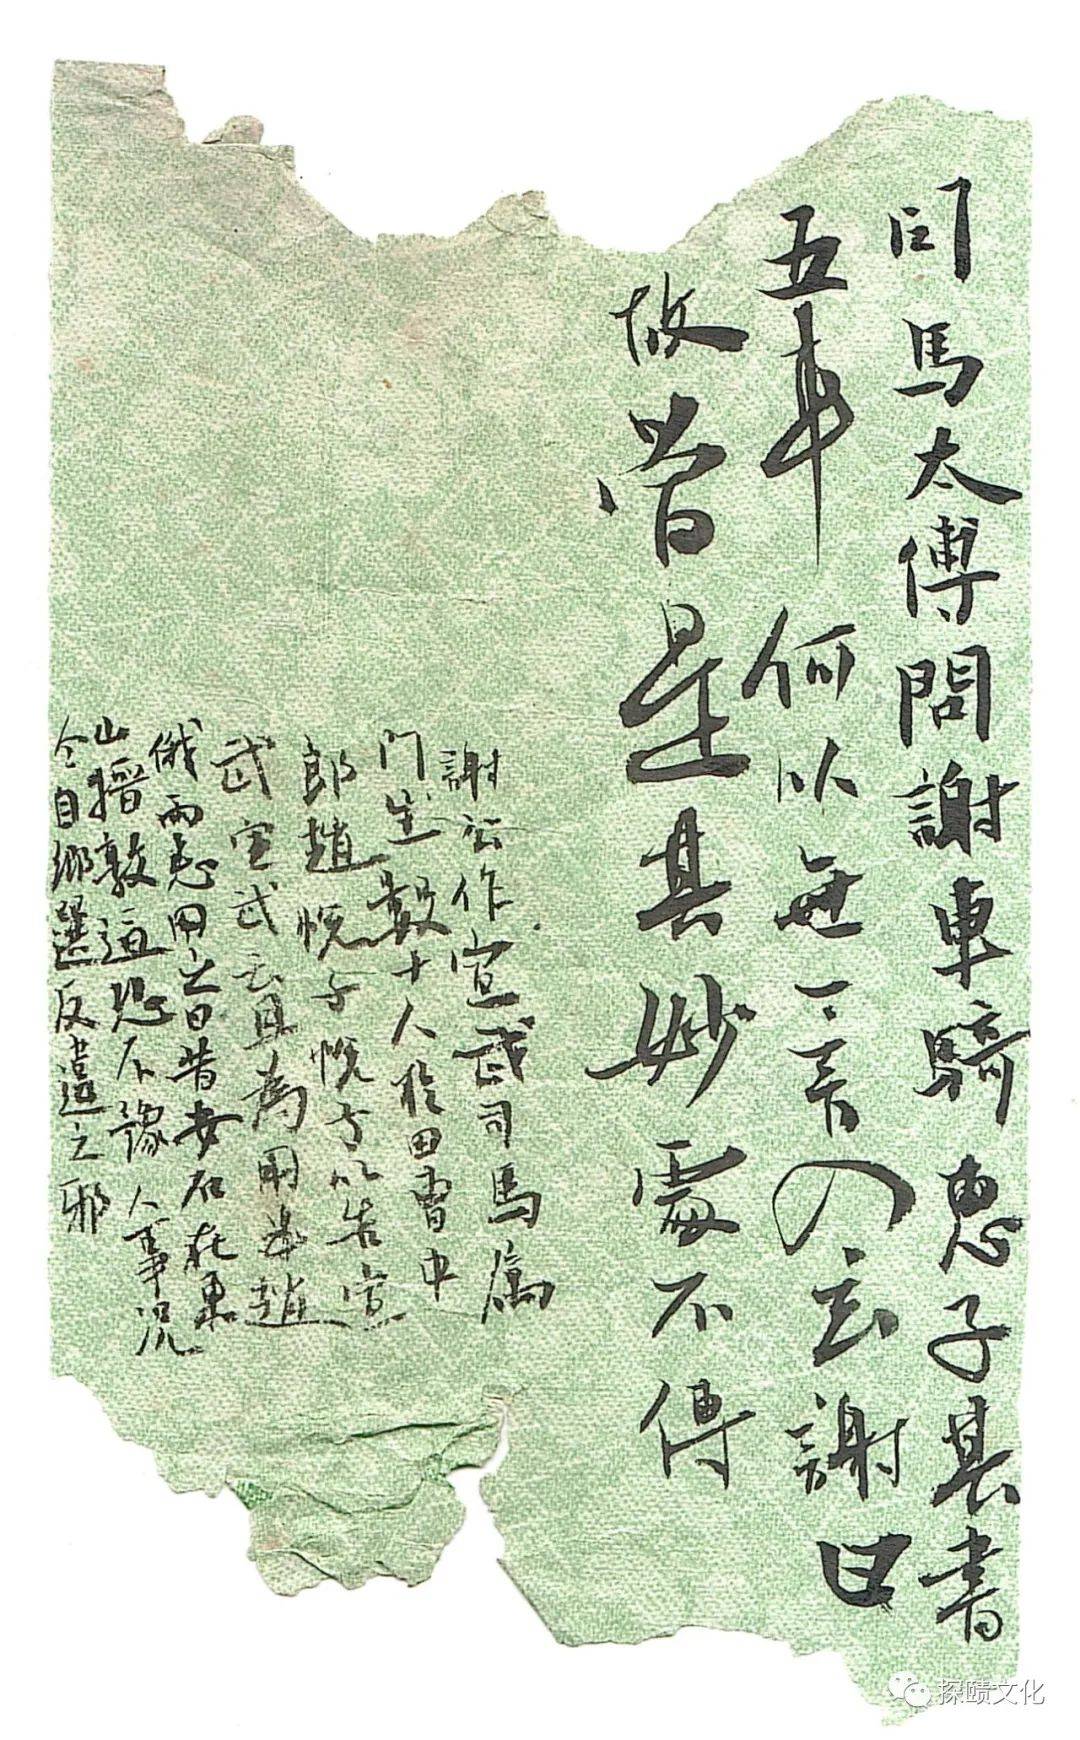 司馬太傅問謝車騎惠子其書
五車何以無一言入玄謝曰
故當是其妙處不傳
謝公作宣武司馬屬
門生數十人於田曹中
郎趙悅子悅子以告宣
武宣武云且為用半趙
俄而悉用之曰昔安石在東
山搢敦逼恐不豫人事況
今自鄉選反違之邪
探赜文化